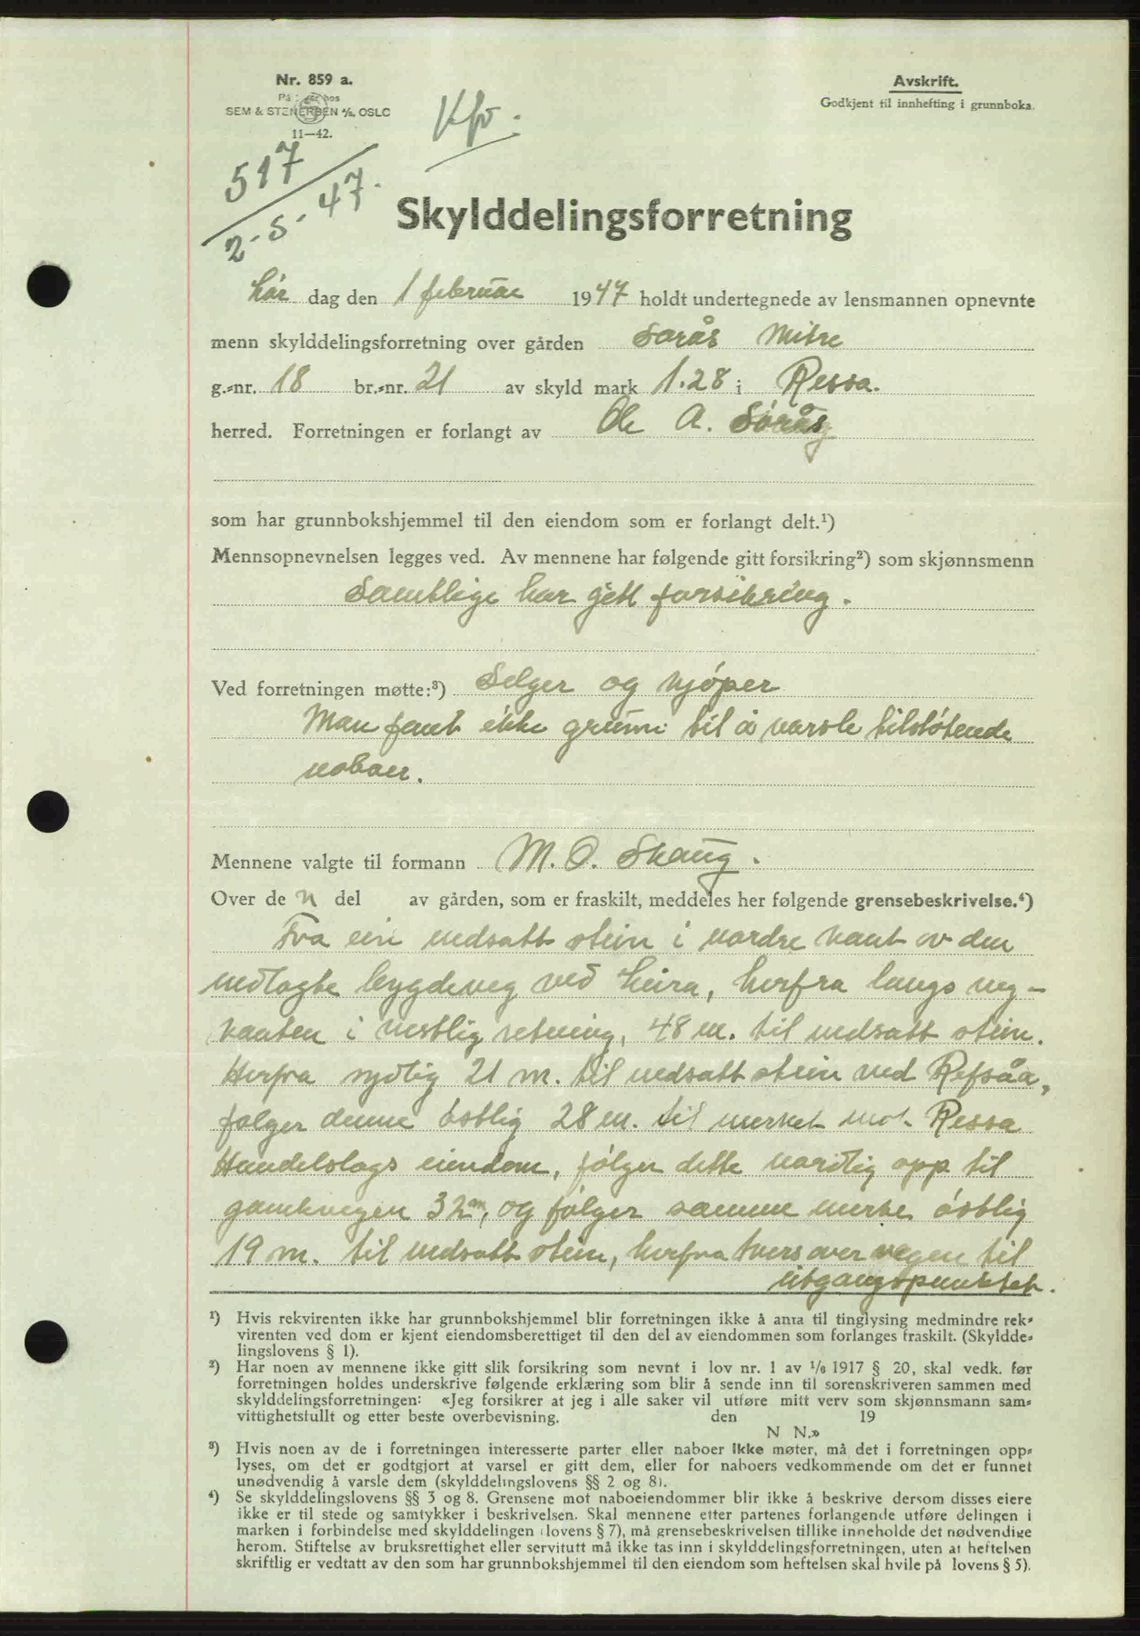 Nr. 859 a.
På lager hos
SEM & STENERSEN A/S, OSLO
11—42.
Avskrift.
Godkjent til innhefting i grunnboka.
517
2-5-47.
Skylddelingsforretning
År dag den 1 februar 1947 holdt undertegnede av lensmannen opnevnte
menn skylddelingsforretning over gården Sørås Mitre
g.-nr. 18 br.-nr. 21 av skyld mark 1.28 i Rissa.
herred. Forretningen er forlangt av Ole A. Sørås
som har grunnbokshjemmel til den eiendom som er forlangt delt.¹)
Mennsopnevnelsen legges ved. Av mennene har følgende gitt forsikring²) som skjønnsmenn
Samtlige har gitt forsikring.
Ved forretningen møtte:³) Selger og kjøper
Man fant ikke grunn til å varsle tilstøtende
naboer.
Mennene valgte til formann M. O. Skaug.
Over de n del av gården, som er fraskilt, meddeles her følgende grensebeskrivelse.⁴)
Fra ein nedsatt stein i nordre kant av den
nedlagte bygdeveg ved Leira, herfra langs veg-
kanten i vestlig retning, 48 m. til nedsatt stein.
Herfra sydlig 21 m. til nedsatt stein ved Refsåa,
følger denne østlig 28 m. til merket mot Rissa
Handelslags eiendom, følger dette nordlig opp til
gamlevegen 32 m, og følger samme merke østlig
19 m. til nedsatt stein, herfra tvers over vegen til
utgangspunktet.
¹) Hvis rekvirenten ikke har grunnbokshjemmel blir forretningen ikke å anta til tinglysing medmindre rek-
virenten ved dom er kjent eiendomsberettiget til den del av eiendommen som forlanges fraskilt. (Skyldde-
lingslovens § 1).
²) Har noen av mennene ikke gitt slik forsikring som nevnt i lov nr. 1 av 1/6 1917 § 20, skal vedk. før
forretningen holdes underskrive følgende erklæring som blir å sende inn til sorenskriveren sammen med
skylddelingsforretningen: «Jeg forsikrer at jeg i alle saker vil utføre mitt verv som skjønnsmann sam-
vittighetsfullt og etter beste overbevisning. den 19
N N.»
³) Hvis noen av de i forretningen interesserte parter eller naboer ikke møter, må det i forretningen opp-
lyses, om det er godtgjort at varsel er gitt dem, eller for naboers vedkommende om det er funnet
unødvendig å varsle dem (skylddelingslovens §§ 2 og 8).
⁴) Se skylddelingslovens §§ 3 og 8. Grensene mot naboeiendommer blir ikke å beskrive dersom disses eiere
ikke er til stede og samtykker i beskrivelsen. Skal mennene etter partenes forlangende utføre delingen i
marken i forbindelse med skylddelingen (lovens § 7), må grensebeskrivelsen tillike inneholde det nødvendige
herom. Stiftelse av bruksrettighet eller servitutt må ikke tas inn i skylddelingsforretningen, uten at heftelsen
skriftlig er vedtatt av den som har grunnbokshjemmel til den eiendom som heftelsen skal hvile på lovens § 5).